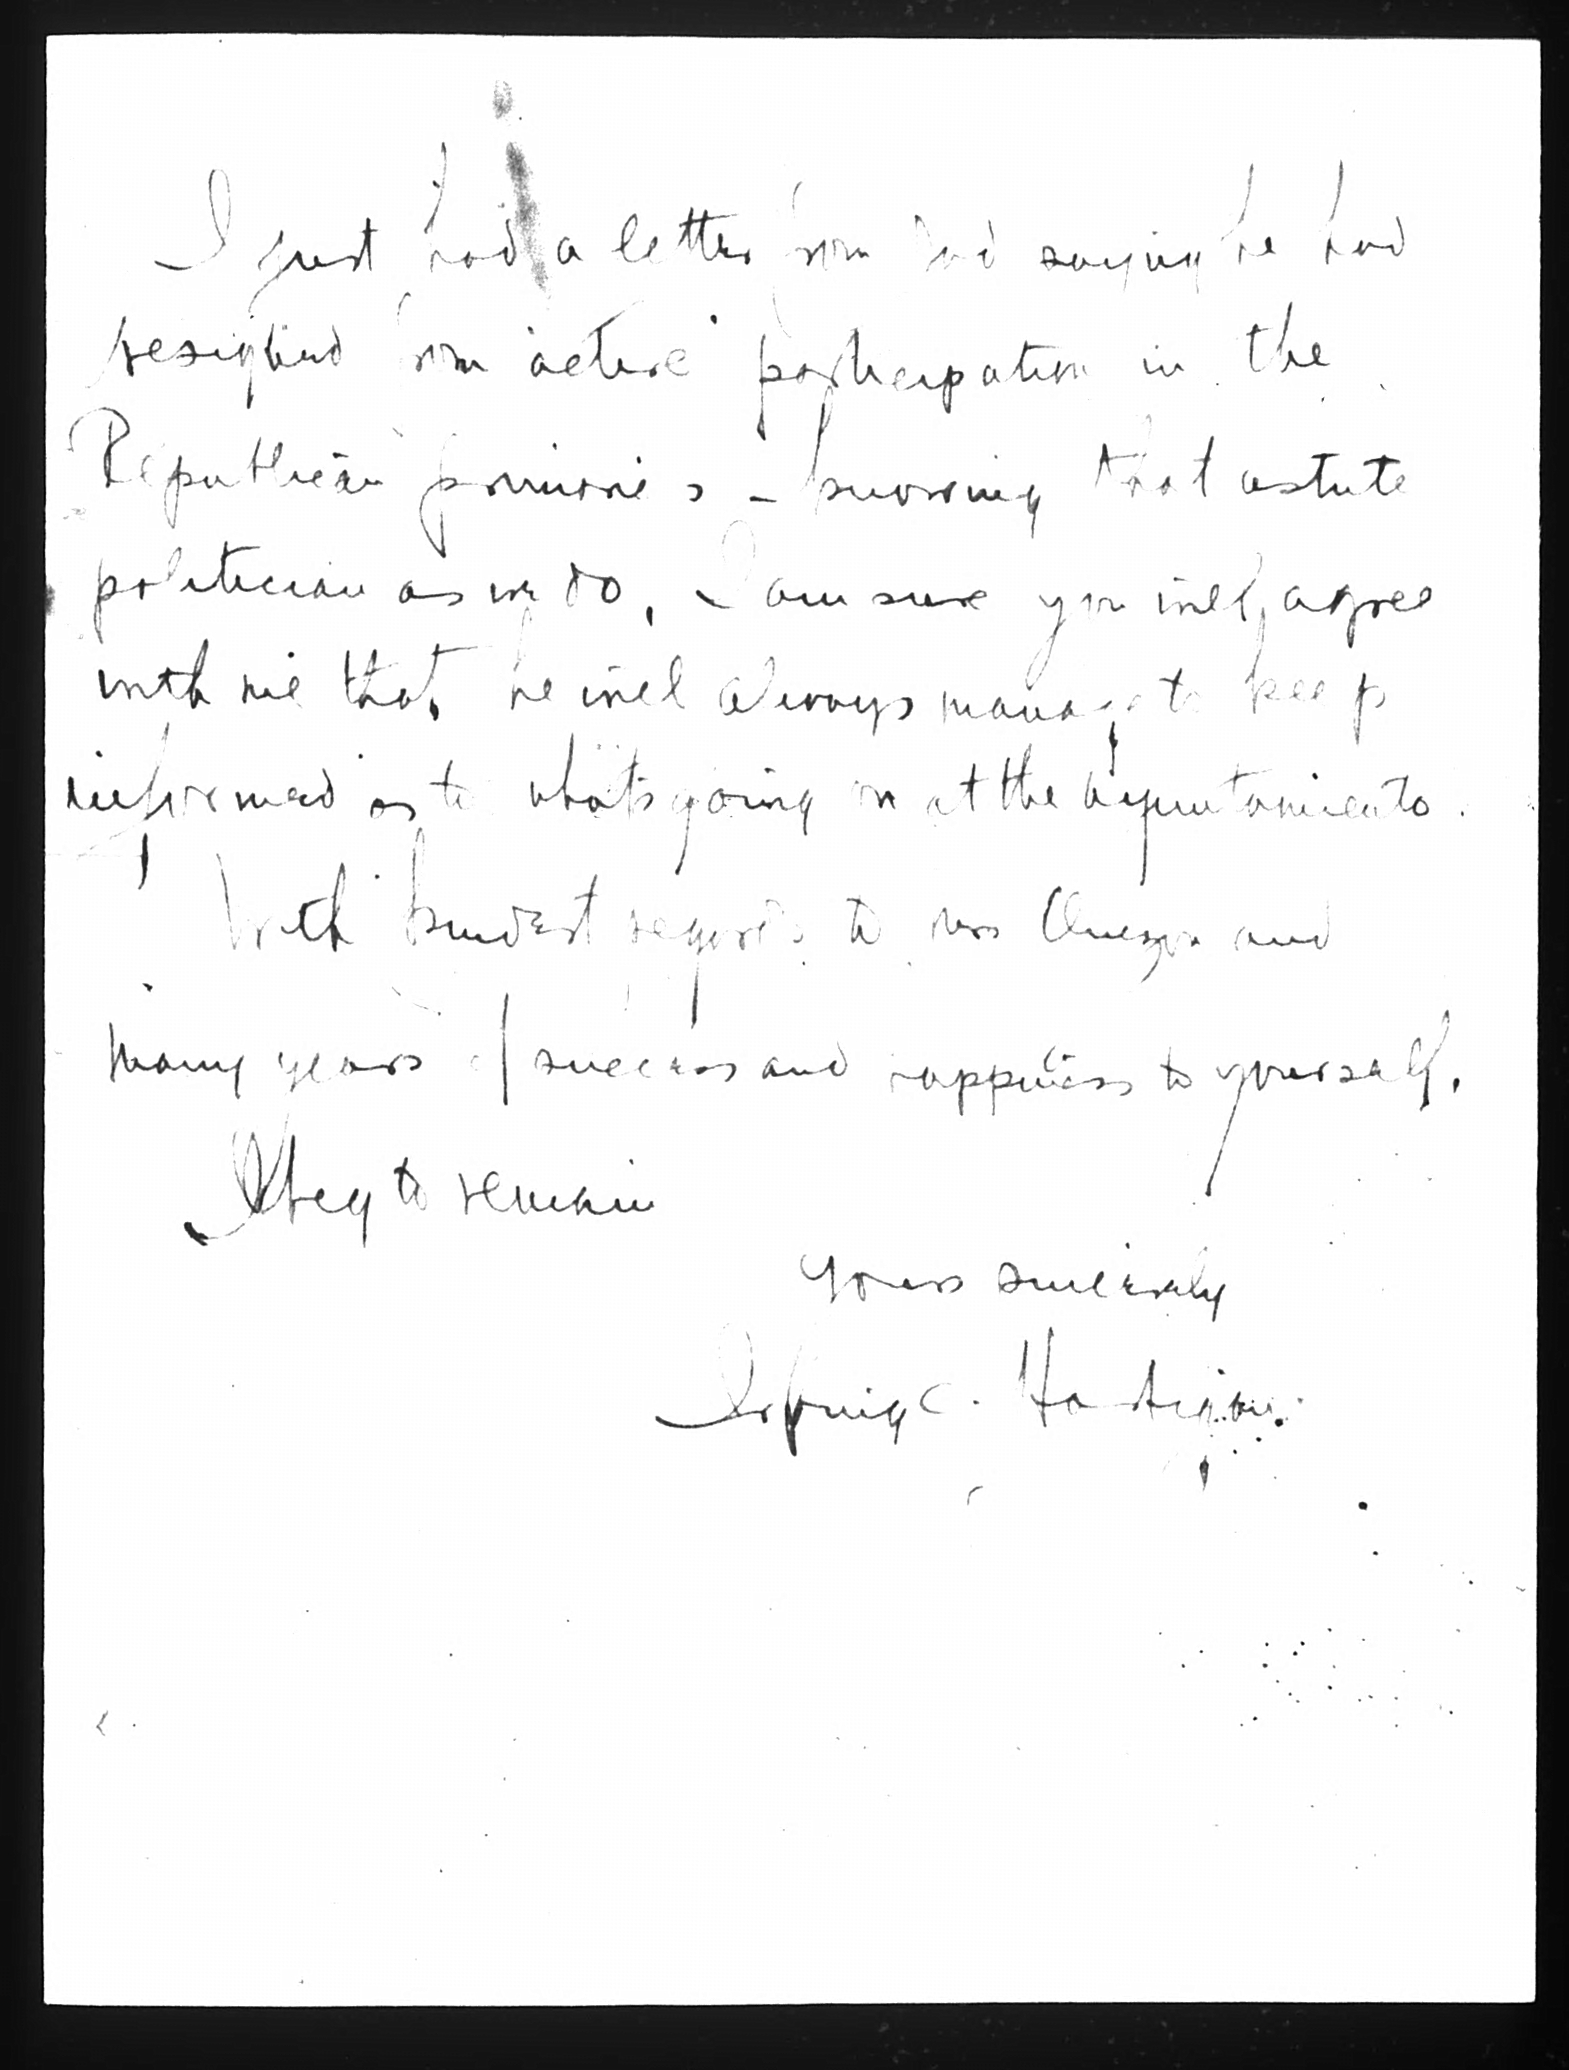 I just had a letter from Dad saying he had
resigned from "active" participation in the
Republican primaries - knowing that astute
politician as we do, I am sure you will agree
with me that he will always manage to keep
informed as to what's going on at the Ayuntamiento.
With kindest regards to Mrs Quezon and
many years of success and happiness to yourself.
I beg to remain
Yours sincerely
Irving C. Hartigan.